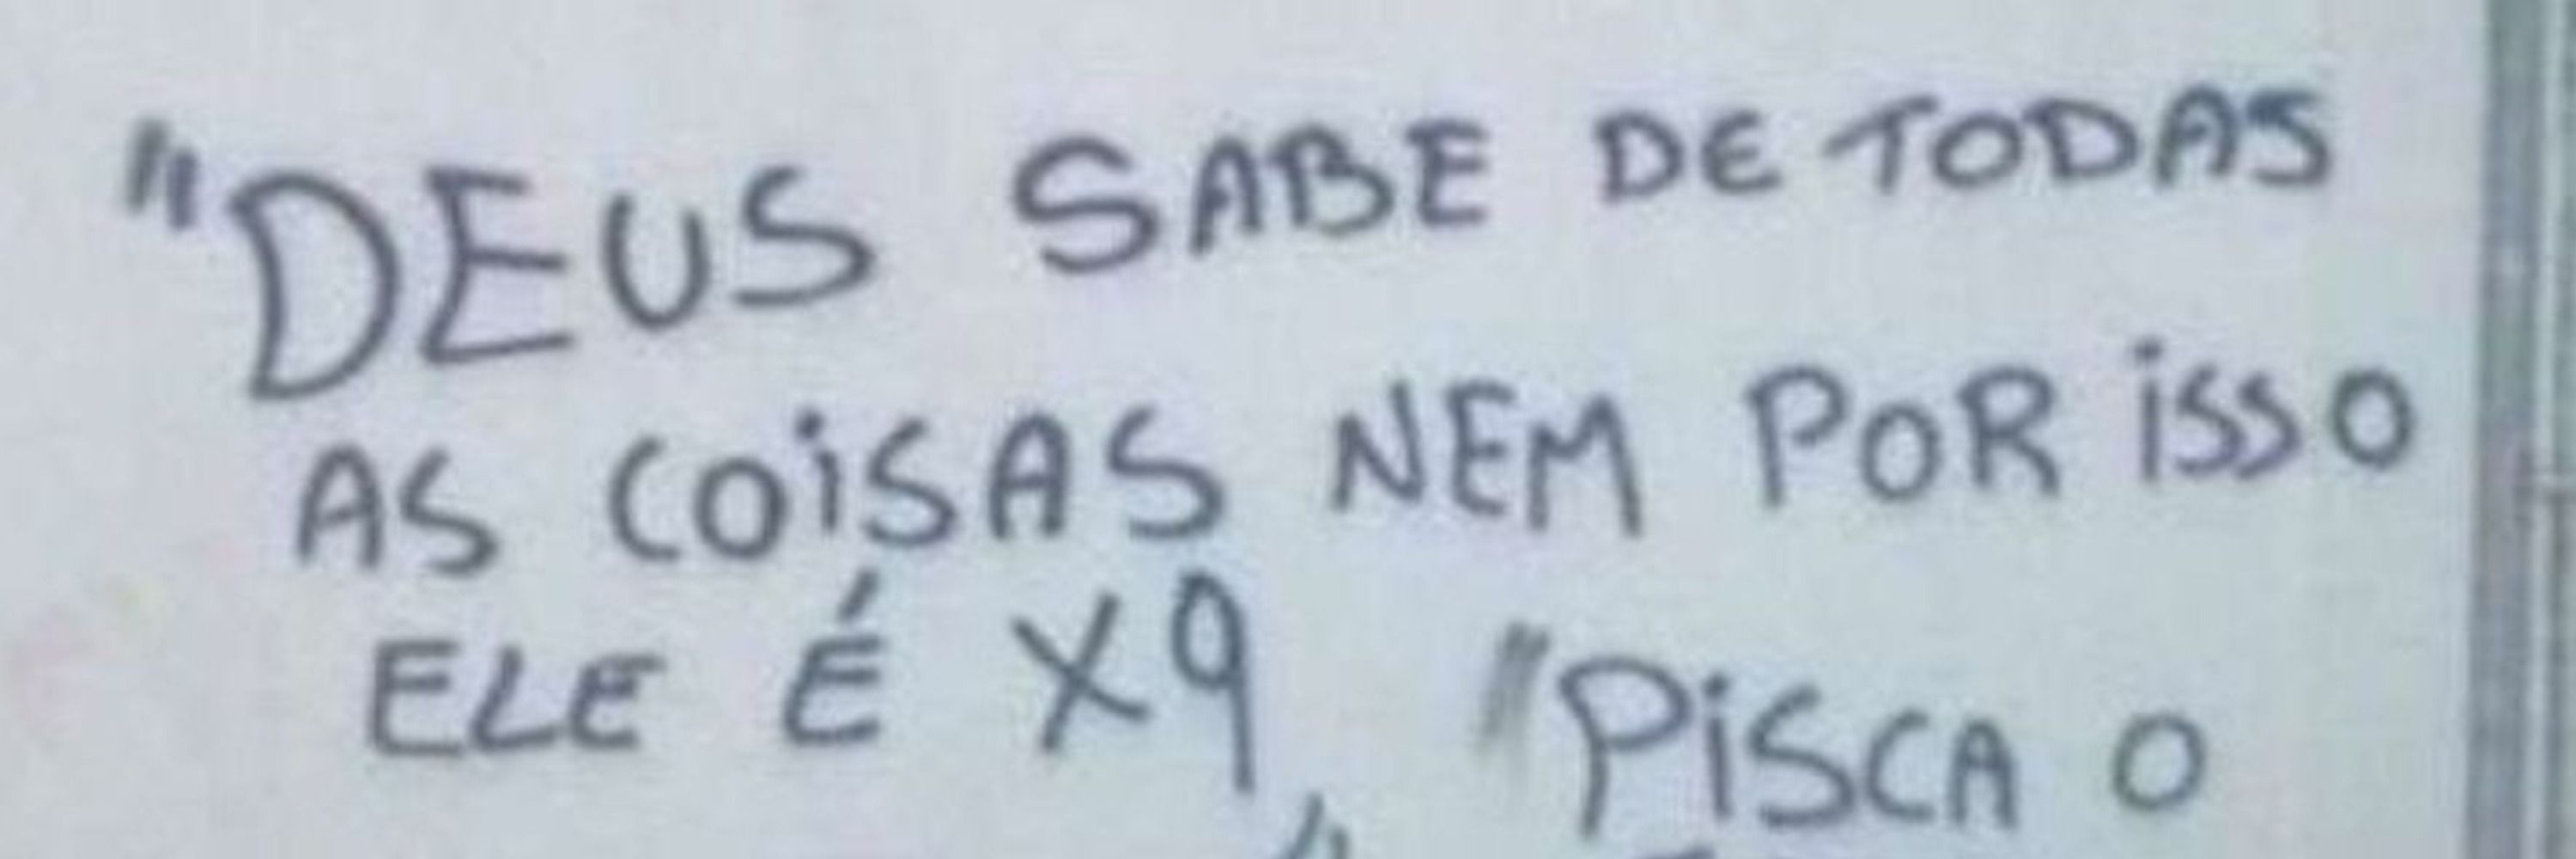 "DEUS SABE DE TODAS
AS COISAS NEM POR ISSO
ELE É X9
"PISCA O
"